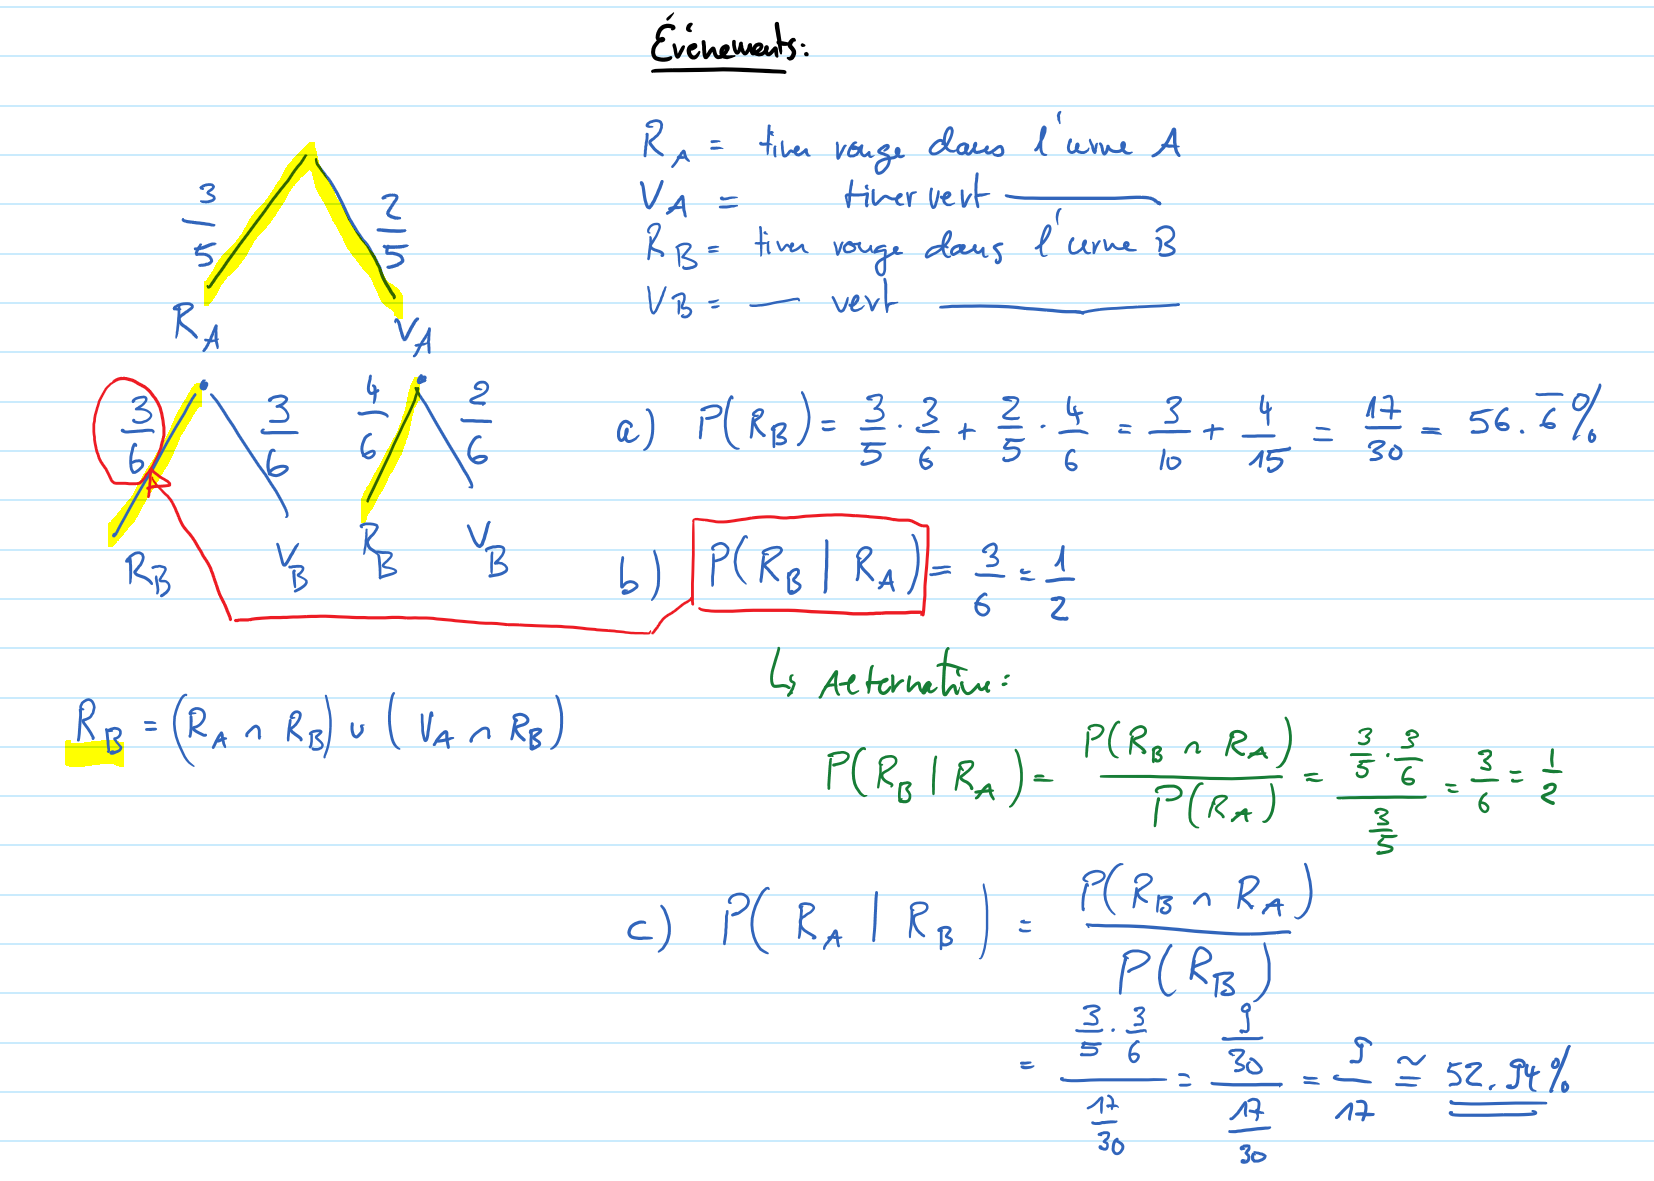 Événements:
R_A = tirer rouge dans l'urne A
V_A = tirer vert ———
R_B = tirer rouge dans l'urne B
V_B = — vert ———
3/5 2/5
R_A V_A
3/6 3/6 4/6 2/6
R_B V_B R_B V_B
a) P(R_B) = 3/5 · 3/6 + 2/5 · 4/6 = 3/10 + 4/15 = 17/30 = 56.6̅%
b) P(R_B | R_A) = 3/6 = 1/2
↳ Alternative:
R_B = (R_A ∩ R_B) ∪ (V_A ∩ R_B)
P(R_B | R_A) = P(R_B ∩ R_A) / P(R_A) = (3/5 · 3/6) / (3/5) = 3/6 = 1/2
c) P(R_A | R_B) = P(R_B ∩ R_A) / P(R_B)
= (3/5 · 3/6) / (17/30) = (9/30) / (17/30) = 9/17 ≅ 52.94%